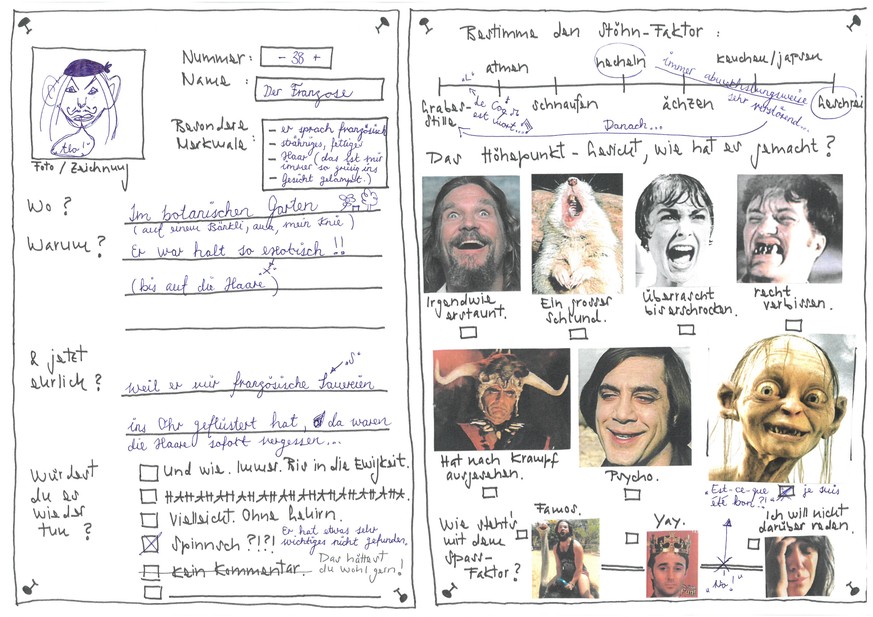 Nummer: - 38 +
Name: Der Franzose
"Alo!"
Foto / Zeichnung
Besondere Merkmale:
- er sprach französisch
- strähniges, fettiges
- Haar (das ist mir
- immer so gruusig ins
- Gesicht gelampet.)
Wo? Im botanischen Garten
(auf einem Bänkli, aua, mein Knie)
Warum? Er war halt so exotisch!!
(bis auf die Haare)
& jetzt ehrlich?
"S"
weil er mir französische Sauereien
ins Ohr geflüstert hat, da waren
die Haare sofort vergessen...
Würdest du es wieder tun?
Und wie. Immer. Bis in die Ewigkeit.
HAHAHAHAHAHAHAHAHAHA.
Vielleicht. Ohne Hirn.
Spinnsch?!?! Er hat etwas sehr
wichtiges nicht gefunden.
Kein Kommentar. Das hättest
du wohl gern!
Bestimme den Stöhn-Faktor:
atmen
hecheln
keuchen/japsen
immer abwechslungsweise
sehr verstörend...
Grabes-
stille
"Le Coq
est mort..."
schnaufen
ächzen
Geschrei
Danach...
Das Höhepunkt-Gesicht, wie hat er gemacht?
Irgendwie
erstaunt.
Ein grosser
Schlund.
Überrascht
bis erschrocken.
recht
verbissen.
Hat nach Krampf
ausgesehen.
Psycho.
"Est-ce-que je suis
été bon?!"
Wie steht's
mit dem
Spass-
Faktor?
Famos.
Yay.
"No!"
Ich will nicht
darüber reden.